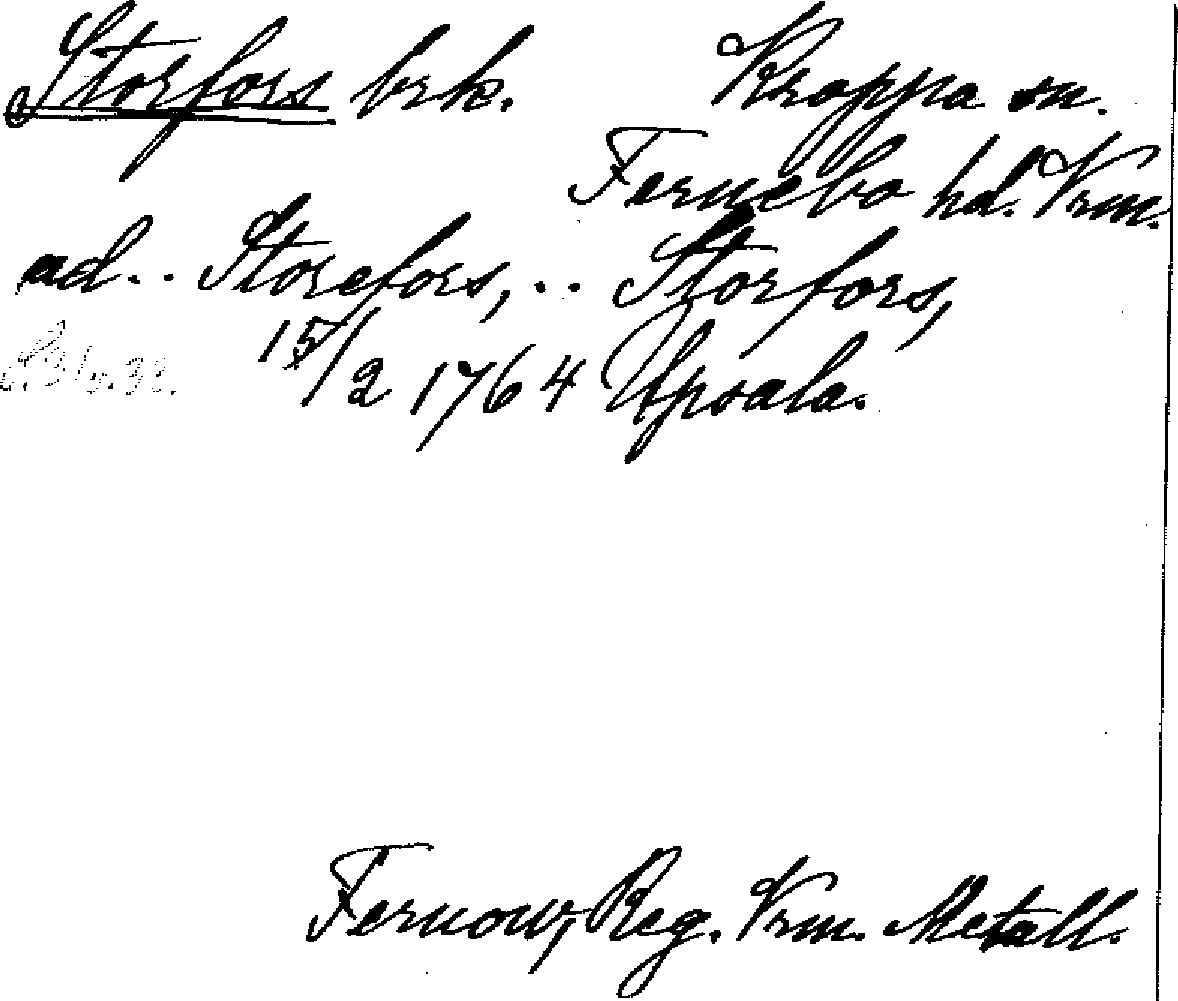 Storfors brk. Kroppa sn.
Fernebo hd. Vrm.
ad.. Storefors, .. Storfors,
15/2 1764 Upsala.
Fernow, Reg. Vrm. Metall.